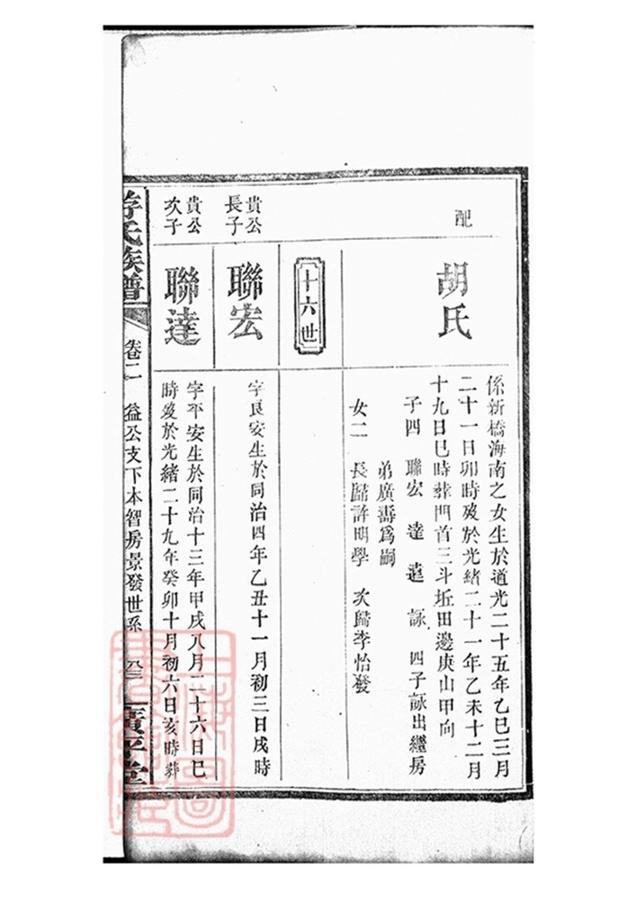 配
胡氏
係新橋海南之女生於道光二十五年乙巳三月
二十一日卯時歿於光緒二十一年乙未十二月
十九日巳時葬門首三斗坵田邊庚山甲向
子四 聯宏 達 詠 四子詠出繼房
弟廣壽爲嗣
女二 長歸許明學 次歸李怡發
十六世
貴公
長子
聯宏
字良安生於同治四年乙丑十一月初三日戌時
貴公
次子
聯達
字平安生於同治十三年甲戌八月二十六日巳
時歿於光緒二十九年癸卯十月初六日亥時葬
氏族譜
卷二
益公支下本智房景發世系
廣平堂